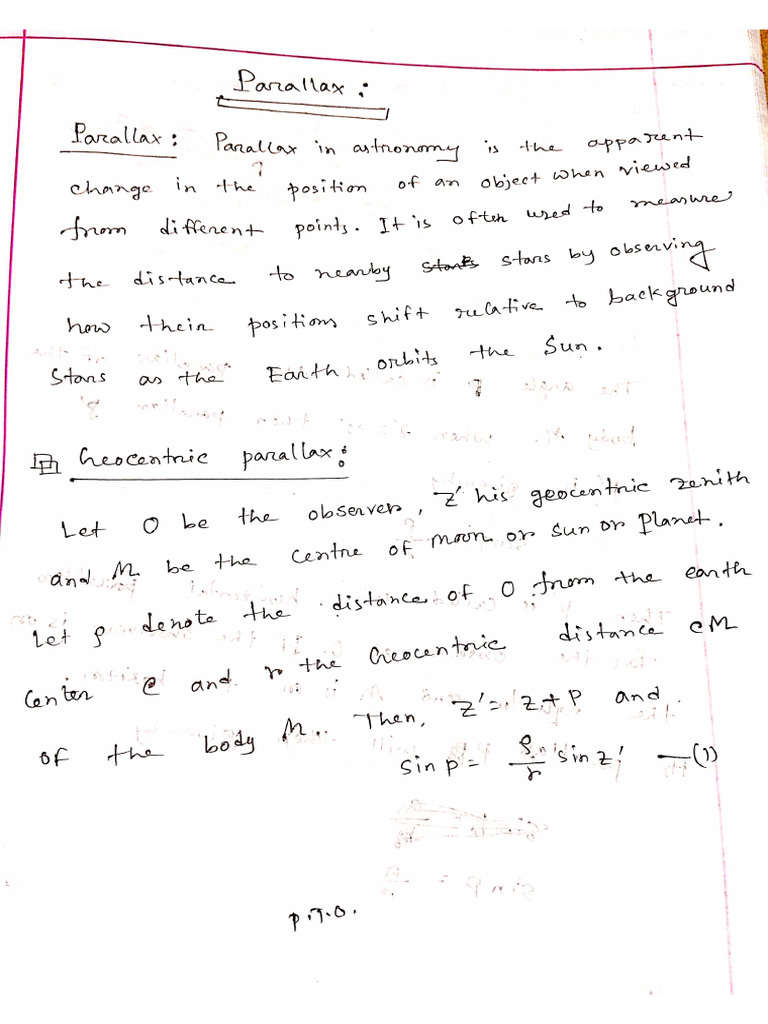 Parallax :
Parallax : Parallax in astronomy is the apparent
change in the position of an object when viewed
from different points. It is often used to measure
the distance to nearby stars by observing
how their positions shift relative to background
stars as the Earth orbits the Sun.
Geocentric parallax :
Let O be the observer, Z' his geocentric zenith
and M be the centre of moon or sun or planet.
Let ρ denote the distance of O from the earth
center C and r the Geocentric distance CM
of the body M. Then, Z' = Z + P and
sin p = ρ/r sin z' — (1)
P.T.O.